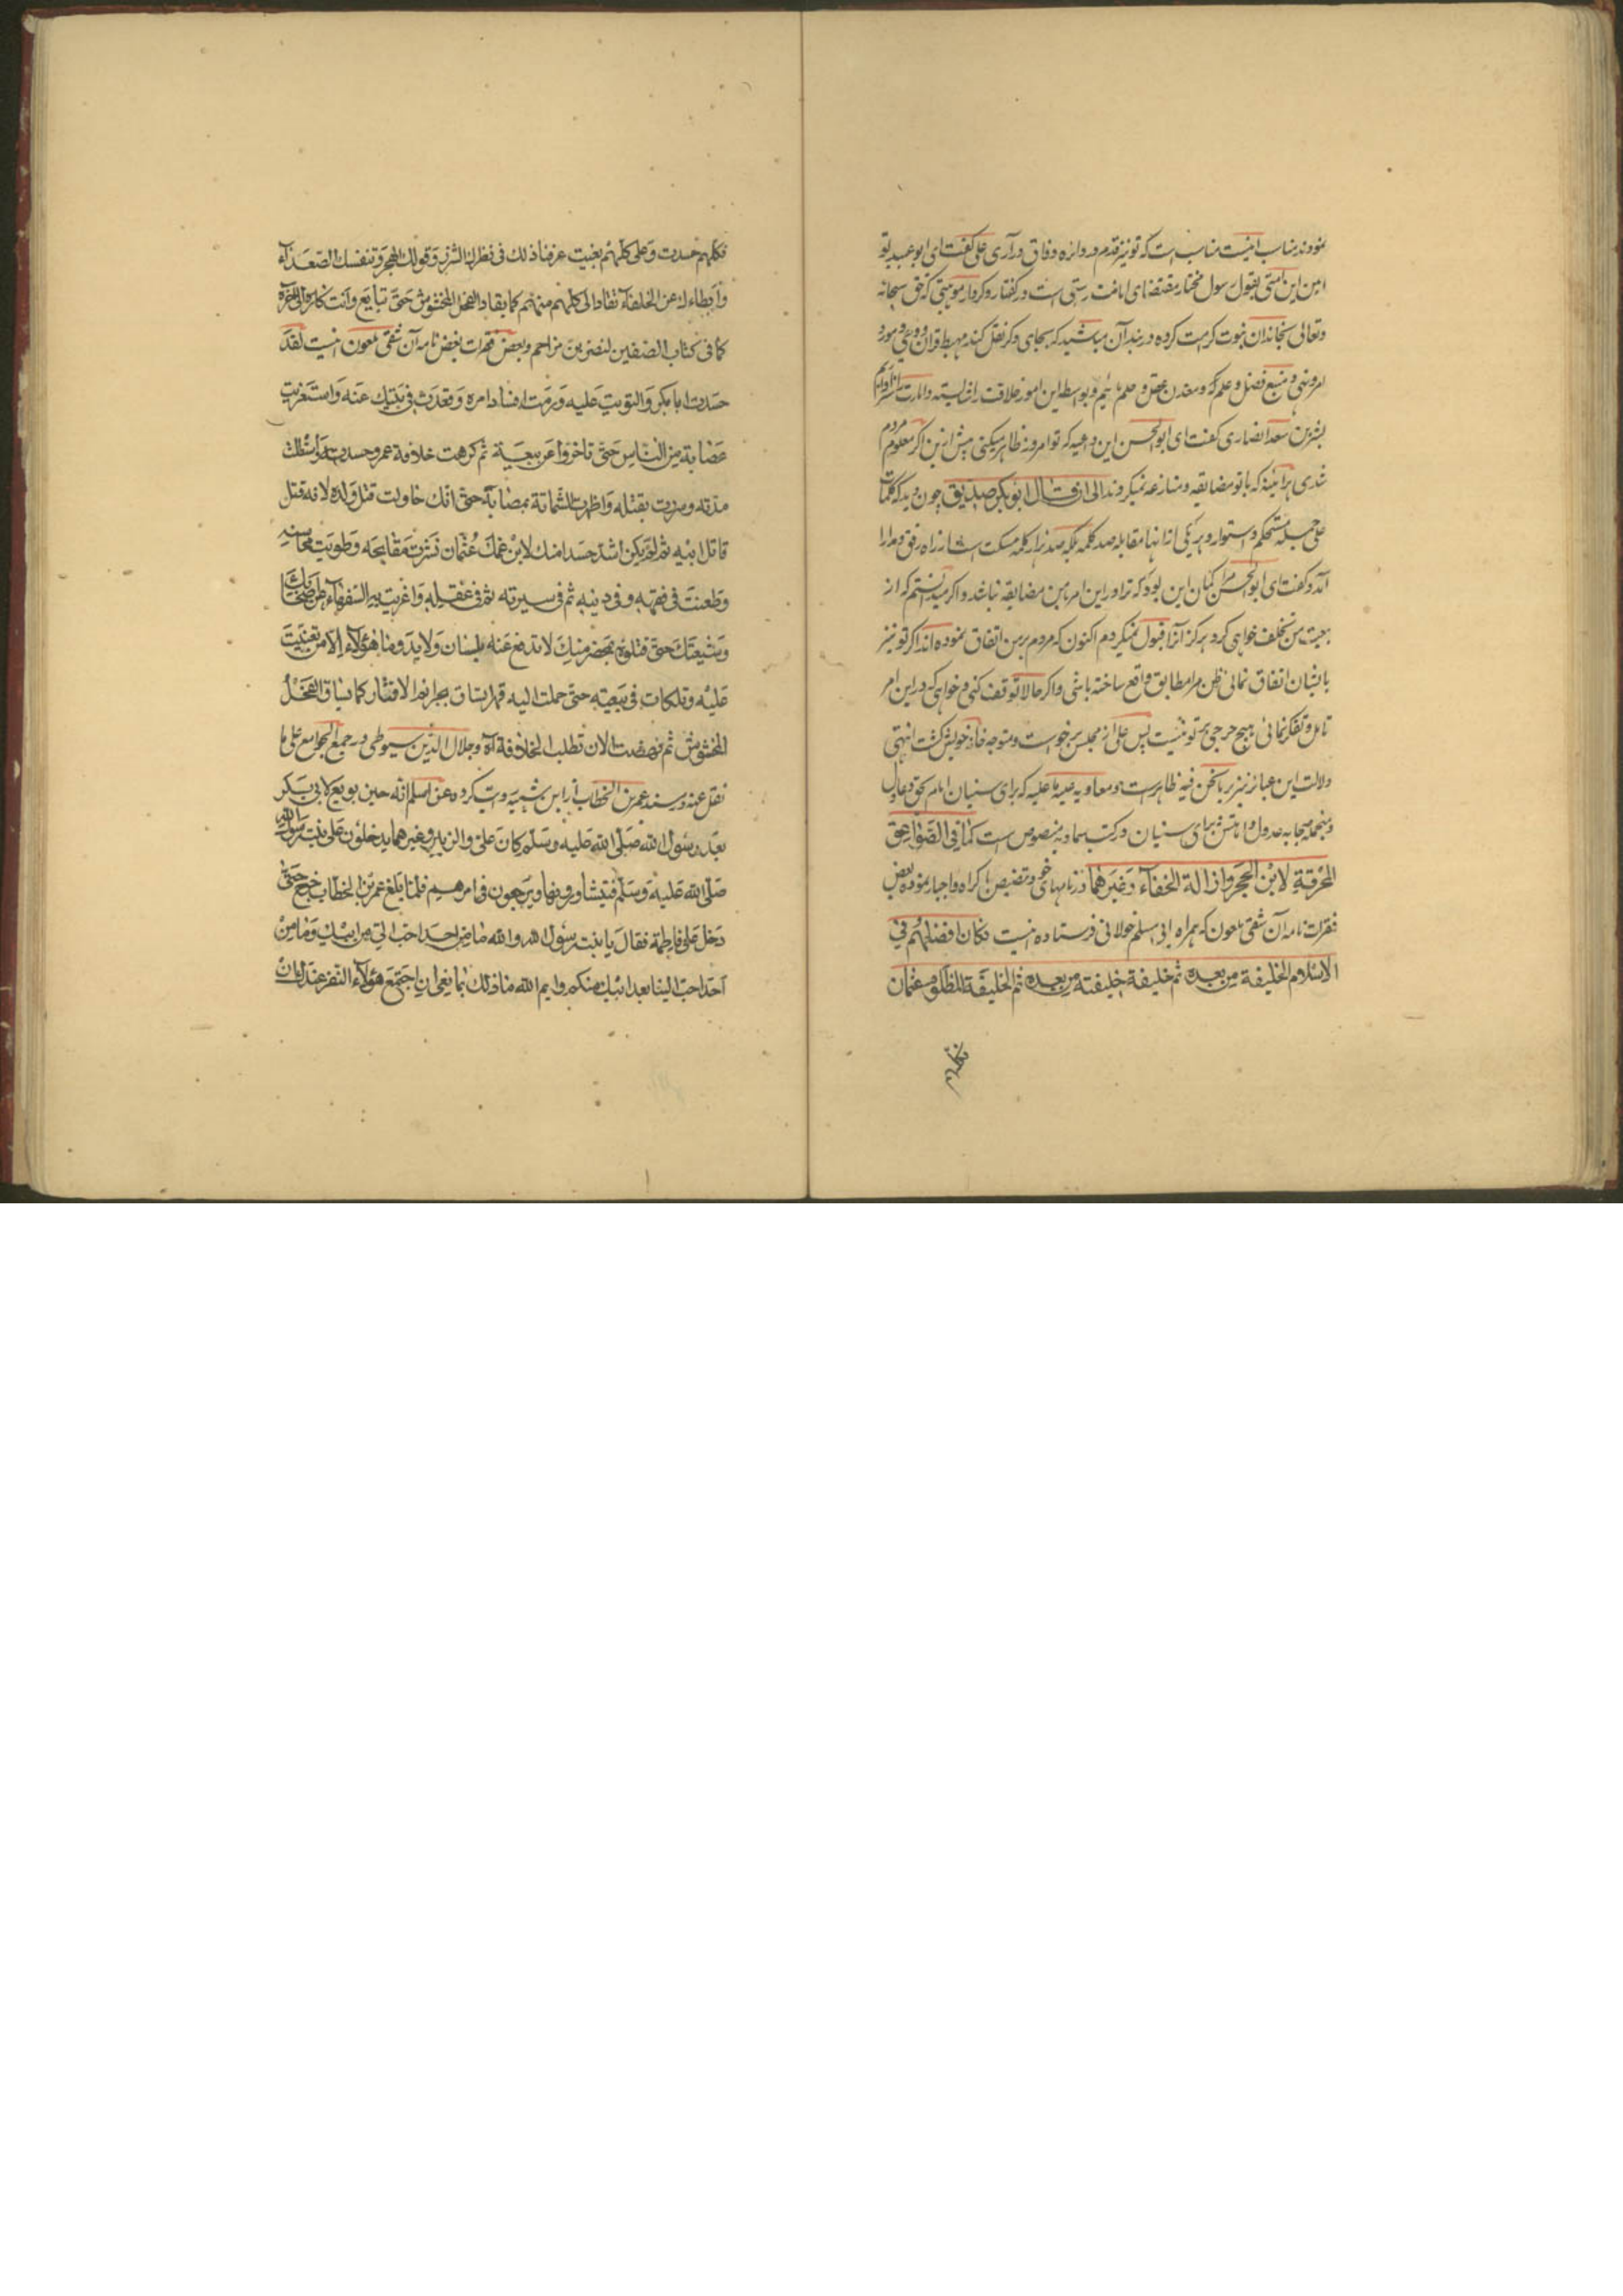 نموده‌اند مناسب اینست مناسب است که تو نیز قدم در دائره وفاق درآری علی گفت ای ابو عبیده تو
امین این امتی بقول رسول مختار مقتضای امانت راستی است در گفتار و کردار موهبتی که حق سبحانه
وتعالی بخاندان نبوت کرامت کرده در بند آن مباشید که بجای دیگر نقل کنند مهبط قران و وحی و مورد
امر و نهی و منبع فضل و علم که و معدن عقل و حلم مائیم و بواسطه این امور خلافت را شایسته و امارت را سزاواریم
بشیر بن سعد انصاری گفت ای ابو الحسن این داعیه که تو امروز ظاهر میکنی پیش ازین اگر معلوم مردم
شدی هر آئینه که با تو مضایقه و منازعه نمیکردند الی ان قال ابو بکر صدیق چون دید که کلمات
علی جمله مستحکم و استوار و هر یکی از انها مقابله صد کلمه بلکه صد هزار کلمه مسکت است از راه رفق و مدارا
آمد و گفت ای ابو الحسن مرا گمان این بود که ترا در این امر با من مضایقه نباشد و اگر میدانستم که از
بیعت من تخلف خواهی کرد هرگز آنرا قبول نمیکردم اکنون که مردم برمن اتفاق نموده اند اگر تو نیز
با ایشان اتفاق نمائی ظن مرا مطابق واقع ساخته باشی و اگر حالا توقف کنی و خواهی که در این امر
تامل و تفکر نمائی هیچ حرجی بر تو نیست پس علی از مجلس برخواست و متوجه خانه خویش گشت انتهی
دلالت این عبارت نیز بر ما نحن فیه ظاهر است و معاویه علیه ما علیه که برای سنیان امام بحق و عادل
و منجمله صحابه عدول و امامتش برای سنیان در کتب سماویه منصوص است کما فی الصواعق
المحرقة لابن الحجر و ازالة الخفاء و غیرهما در نامهای خود تنصیص باکراه و اجبار نموده بعض
فقرات نامه آن شقی ملعون که همراه ابی مسلم خولانی فرستاده اینست فکان افضلهم فی
الاسلام الخلیفة من بعده ثم خلیفة خلیفته من بعده ثم الخلیفة المظلوم عثمان
فکلهم
فکلهم حسدت وعلی کلهم بغیت عرفنا ذلک فی نظرک الشزر وقولک الهجر وتنفسک الصعداء
وابطاءک عن الخلفاء تقاد الی کلهم منهم کما یقاد الفحل المخشوش حتی تبایع وانت کاره الی اخره
کما فی کتاب الصفین لنصر بن مزاحم وبعض فقرات بعض نامه آن شقی ملعون اینست لقد
حسدت ابا بکر والتویت علیه ورمت افساد امره وقعدت فی بیتک عنه واستغویت
عصابة من الناس حتی تاخروا عن بیعته ثم کرهت خلافة عمر وحسدته واستطلت
مدته وسررت بقتله واظهرت الشماتة بمصابه حتی انک حاولت قتل ولده لانه قتل
قاتل ابیه ثم لم یکن اشد حسدا منک لابن عمک عثمان نشرت مقابحه وطویت محاسنه
وطعنت فی فقهه وفی دینه ثم فی سیرته ثم فی عقله واغریت به السفهاء من اصحابک
وشیعتک حتی قتلوه بمحضر منک لا تدفع عنه بلسان ولا ید وما هؤلاء الا من بغیت
علیه وتلکات فی بیعته حتی حملت الیه قهرا تساق بخزائم الاقتسار کما یساق الفحل
المخشوش ثم نهضت الان تطلب الخلافة آه وجلال الدین سیوطی در جمیع الجوامع علی ما
نقل عنه در مسند عمر بن الخطاب از ابن شیبه روایت کرده عن اسلم انه حین بویع لابی بکر
بعد رسول الله صلی الله علیه وسلم کان علی والزبیر وغیرهما یدخلون علی بنت رسول الله
صلی الله علیه وسلم فیتشاورونها ویرجعون فی امرهم فلما بلغ عمر بن الخطاب خرج حتی
دخل علی فاطمة فقال یا بنت رسول الله والله ما من احد احب الی من ابیک وما من
احد احب الینا بعد ابیک منکم وایم الله ما ذلک بمانعی ان اجتمع هؤلاء النفر عندک ان